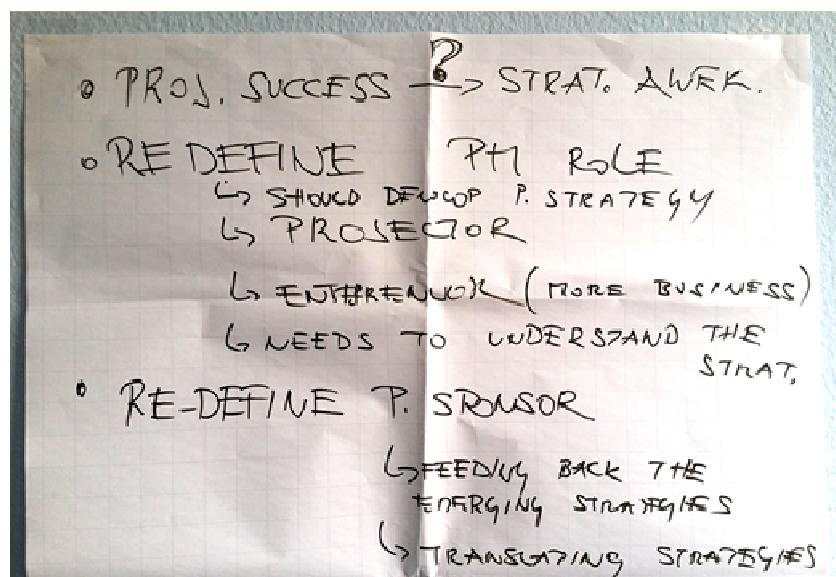 • PROJ. SUCCESS —?→ STRAT. AWER.
• RE DEFINE PM ROLE
↳ SHOULD DEVELOP P. STRATEGY
↳ PROJECTOR
↳ (MORE BUSINESS)
↳ NEEDS TO UNDERSTAND THE
STRAT.
• RE-DEFINE P. SPONSOR
↳ FEEDING BACK THE
EMERGING STRATEGIES
↳ TRANSLATING STRATEGIES